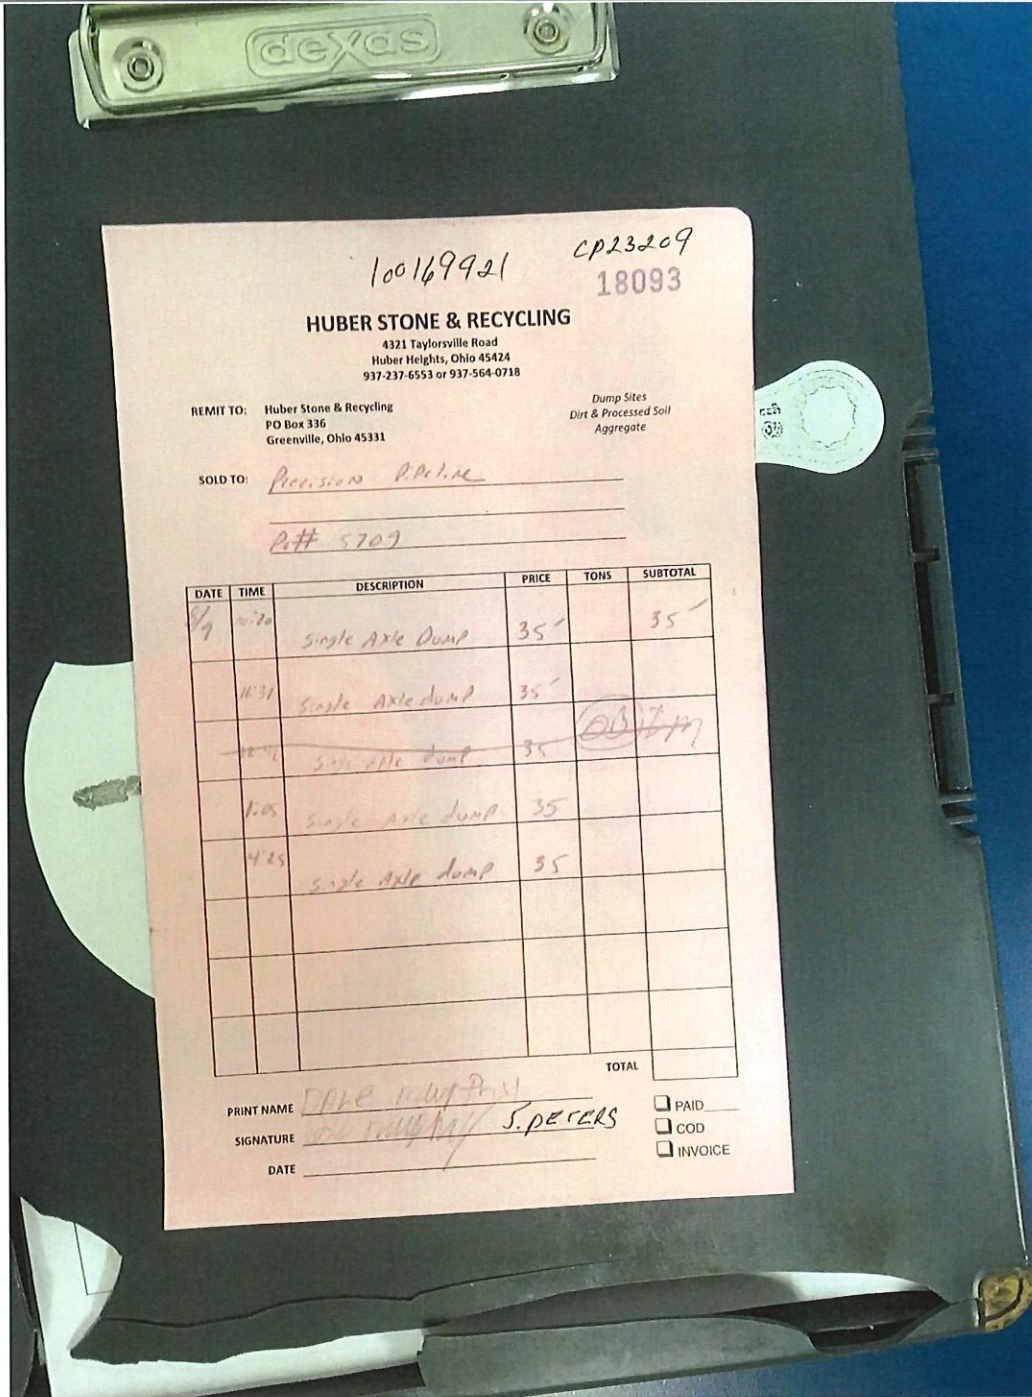 dexas
100169921 CP23209
18093
HUBER STONE & RECYCLING
4321 Taylorsville Road
Huber Heights, Ohio 45424
937-237-6553 or 937-564-0718
REMIT TO: Huber Stone & Recycling
PO Box 336
Greenville, Ohio 45331
Dump Sites
Dirt & Processed Soil
Aggregate
SOLD TO: Precision Pipeline
Po# 5709
DATE TIME DESCRIPTION PRICE TONS SUBTOTAL
10:20 Single Axle Dump 35 35
11:31 Single Axle dump 35
Single Axle dump 35
1:05 Single Axle dump 35
4:25 Single Axle dump 35
TOTAL
PRINT NAME DALE
SIGNATURE S. PETERS
DATE
PAID
COD
INVOICE